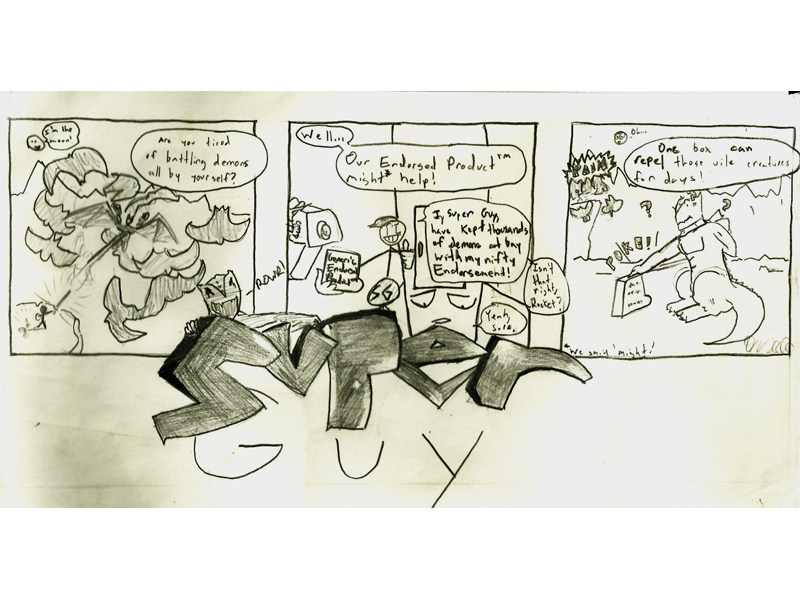 I'm the
moon!
Are you tired
of battling demons
all by yourself?
ROWR!
Well...
Our Endorsed Product™
might* help!
Generic
Endorsed
Product™
I, Super Guy,
have kept thousands
of demons at bay
with my nifty
Endorsement!
SG
Isn't
that
right,
Rocket?
Yeah,
Sure.
*We said 'might'!
Oh...
One box can
repel those vile creatures
for days!
PAIN
?
POKE!!
SUPER
GUY